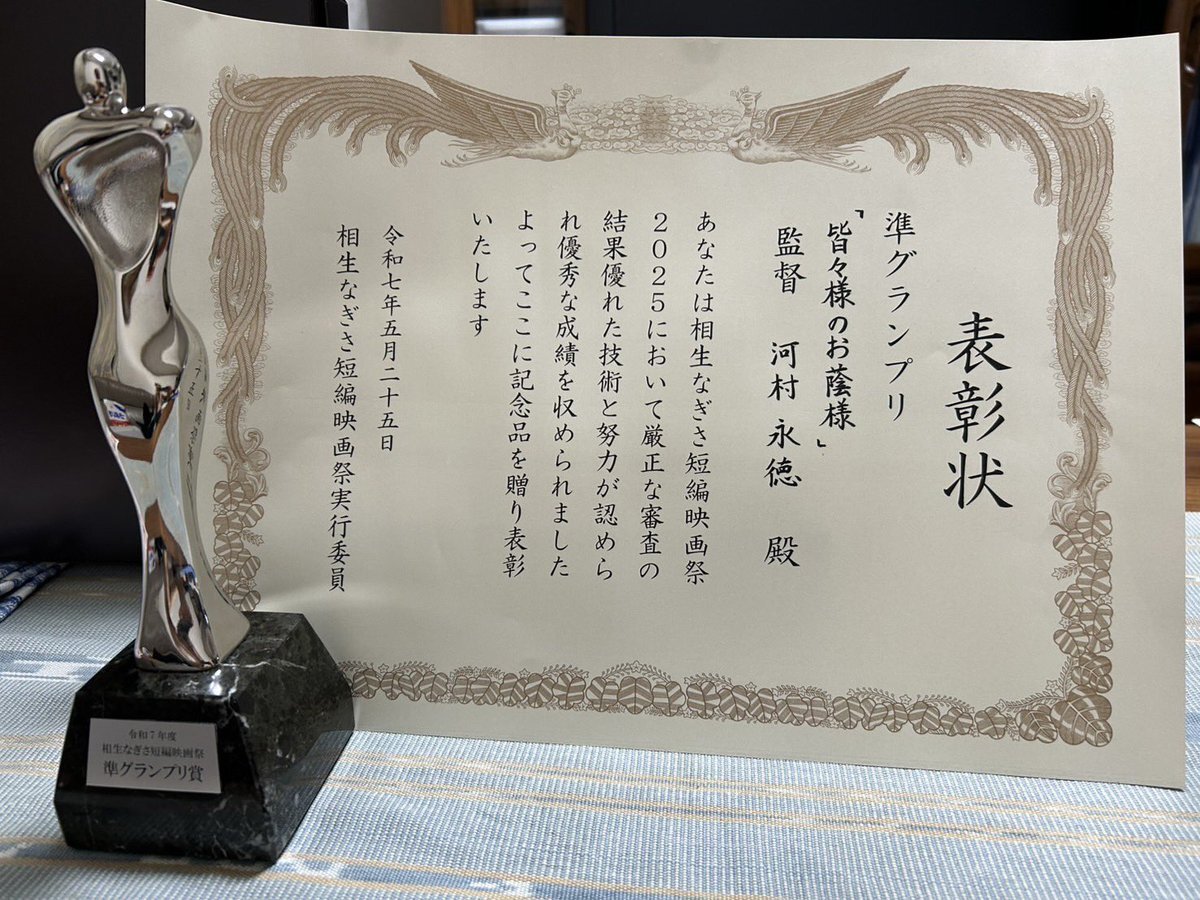 表彰状
準グランプリ
「皆々様のお蔭様」
監督 河村永徳 殿
あなたは相生なぎさ短編映画祭
2025において厳正な審査の
結果優れた技術と努力が認めら
れ優秀な成績を収められました
よってここに記念品を贈り表彰
いたします
令和七年五月二十五日
相生なぎさ短編映画祭実行委員
令和7年度
相生なぎさ短編映画祭
準グランプリ賞